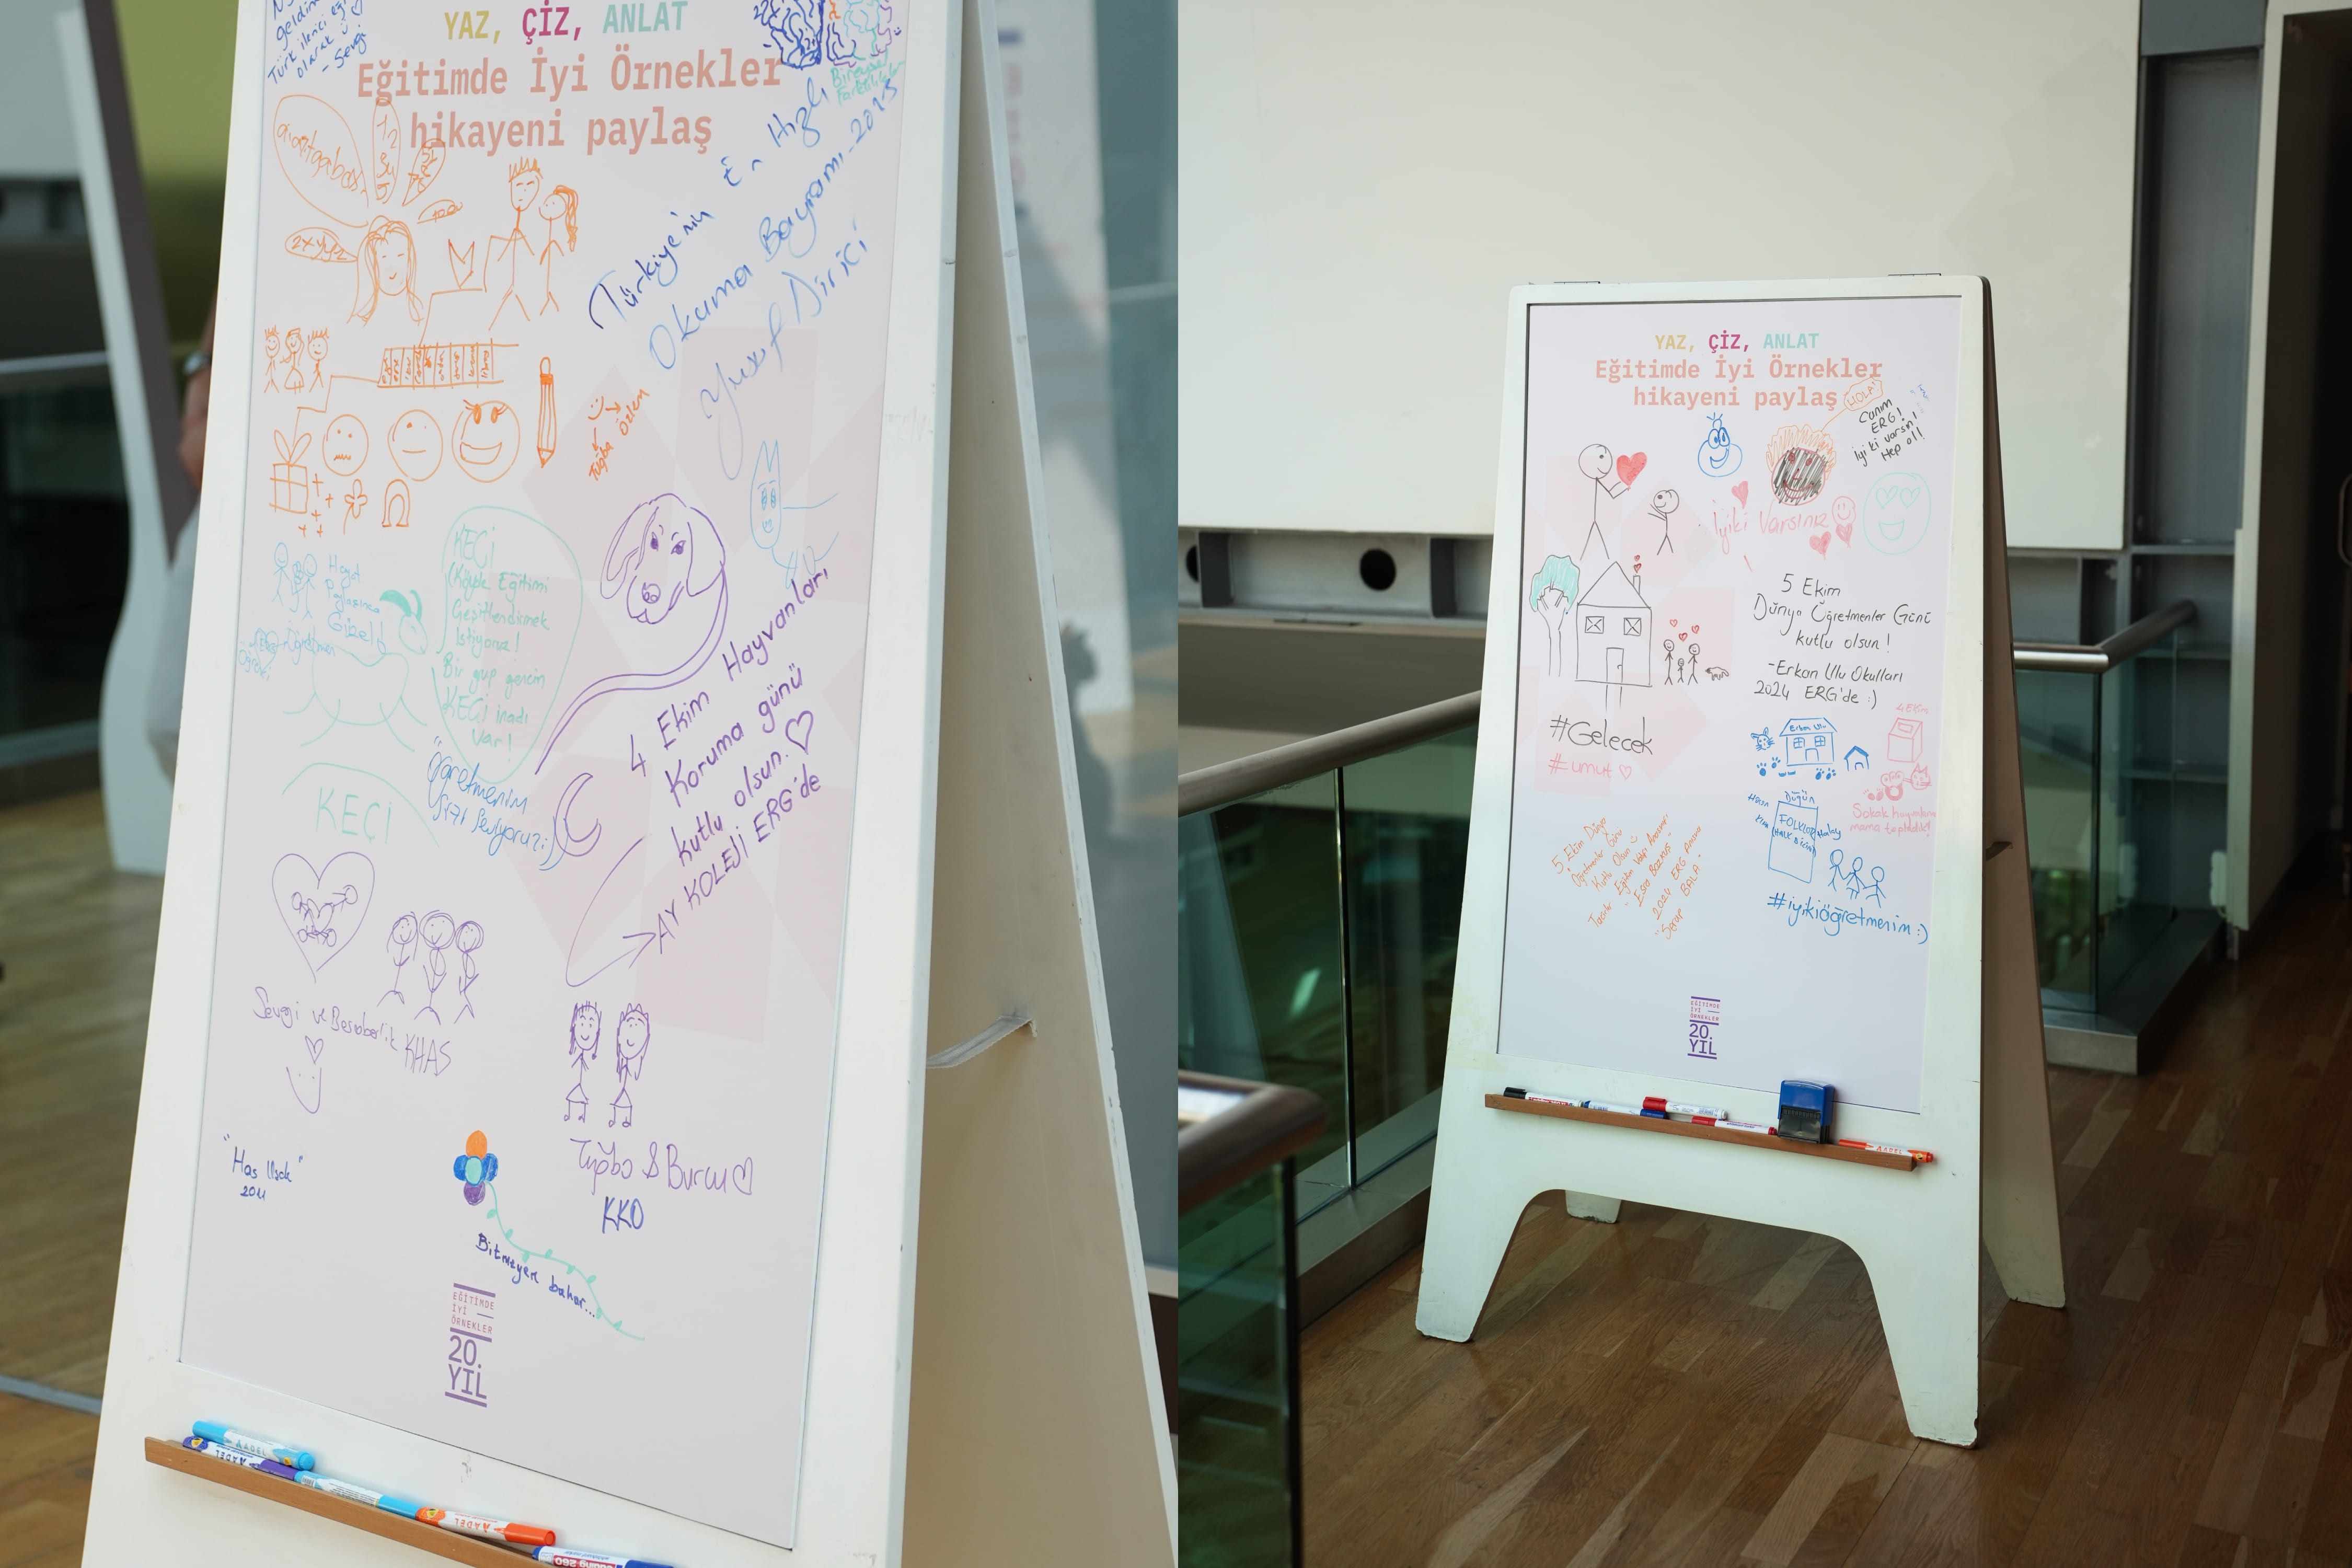 YAZ, ÇİZ, ANLAT
Eğitimde İyi Örnekler
hikayeni paylaş
olarak
- Sevgi
Bireysel
Farklılıklar
12
2xyyz
Türkiye'nin En Hızlı
Okuma Bayramı_2023
Yusuf Dirici
Tuğba Özlem
Hayat
Paylaşınca
Güzel
Öğretmen
KEÇİ
(Köyde Eğitimi
Çeşitlendirmek
İstiyoruz!
Bir grup gencin
KEÇİ inadı
var!
KEÇİ
"Öğretmenim
Sizi Seviyoruz:)
4 Ekim Hayvanları
Koruma günü
kutlu olsun.
AY KOLEJİ ERG'de
Sevgi ve Beraberlik KHAS
"Has Uşak"
Tuğba & Burcu
KKO
Bitmeyen bahar...
EĞİTİMDE
İYİ
ÖRNEKLER
20.
YIL
ADEL
ADEL
edding 260
YAZ, ÇİZ, ANLAT
Eğitimde İyi Örnekler
hikayeni paylaş
HOLA!
Canım
ERG!
İyi ki varsın!
Hep ol!
İyiki Varsınız
5 Ekim
Dünya Öğretmenler Günü
kutlu olsun!
-Erkan Ulu Okulları
2024 ERG'de :)
#Gelecek
#umut
4 Ekim
Erkan Ulu
Sokak hayvanlarına
mama topladık!
Düğün
FOLKLOR
Halay
5 Ekim Dünya
Öğretmenler Günü
Kutlu Olsun
2024 ERG
#iyikiöğretmenim:)
EĞİTİMDE
İYİ
ÖRNEKLER
20.
YIL
ADEL